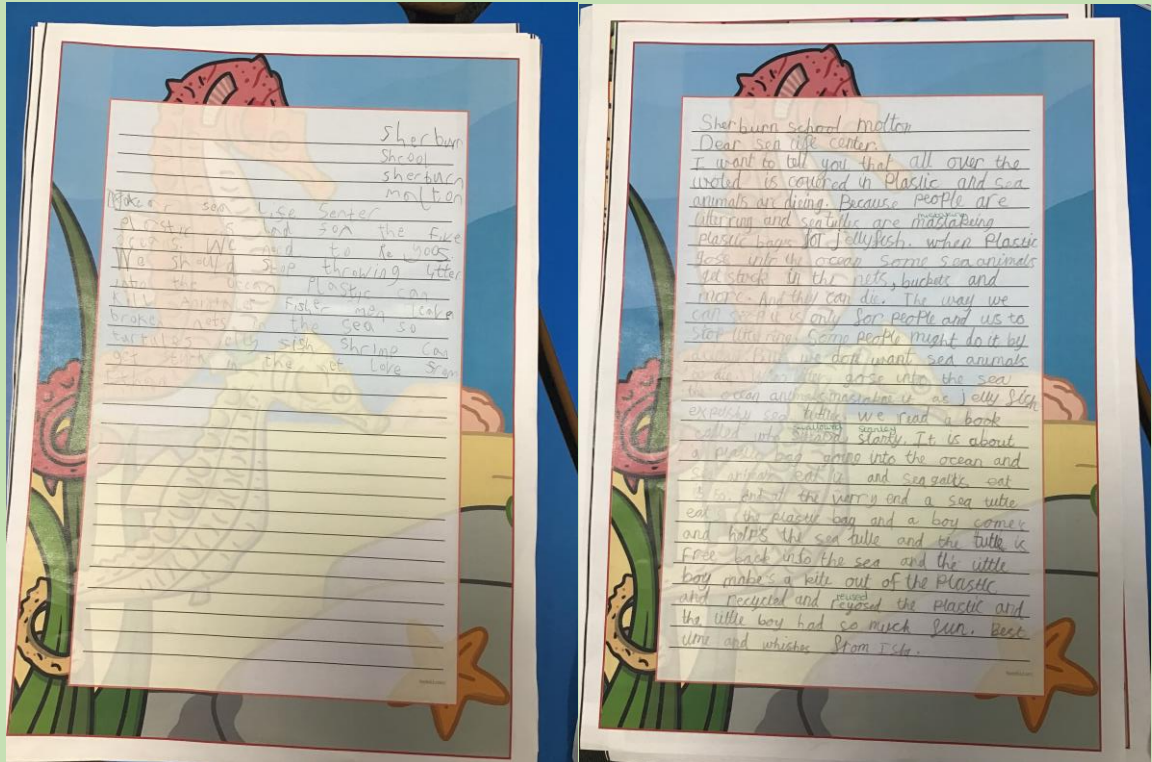 sherburn
Shcool
sherburn
malton
sea life Senter
Plastic is bad for the five
oceans. We need to Re yoos
We should stop throwing litter
into the ocean Plastic can
kill Animals Fisher men leave
broken nets in the sea so
jelly fish Shrimp can
get in the net Love from
Sherburn school molton
Dear sea life center.
I want to tell you that all over the
is covered in Plastic and sea
animals are dieing. Because people are
litterring and sea are mastakeing
plastic bags for jellyfish. when Plastic
gose into the ocean some sea animals
get stock in the nets, buckets and
more. And they can die. The way we
can is only for people and us to
stop Some people might do it by
we dont want sea animals
to die. gose into the sea
the ocean animals it as jelly fish
sea we read a book
called It is about
a plastic bag going into the ocean and
eat it and sea eat
it so. and at the verry end a sea tutle
eat the plastic bag and a boy comes
and helps the sea tutle and the tutle is
free back into the sea and the little
boy makes a kite out of the Plastic
and recycled and reused the plastic and
the little boy had so much fun. Best
and whishes from